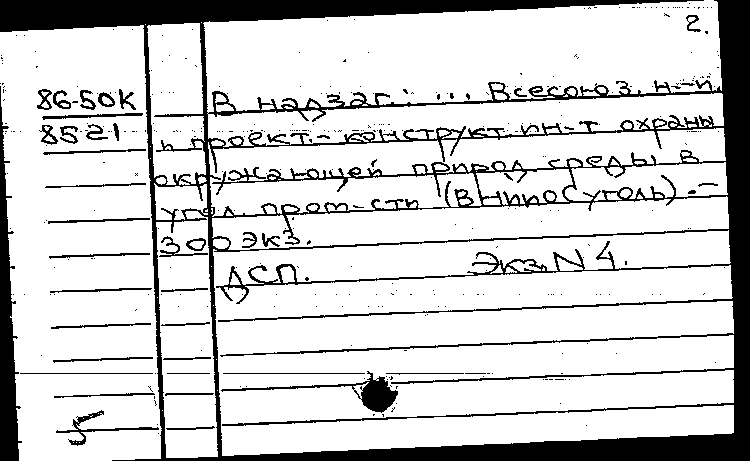 2.
86-50К
8521
В надзаг.: ... Всесоюз. н.-и.
и проект.-конструкт. ин-т охраны
окружающей природ. среды в
угол. пром-сти (ВНИИОСуголь). -
300 экз.
ДСП. Экз. N 4.
5